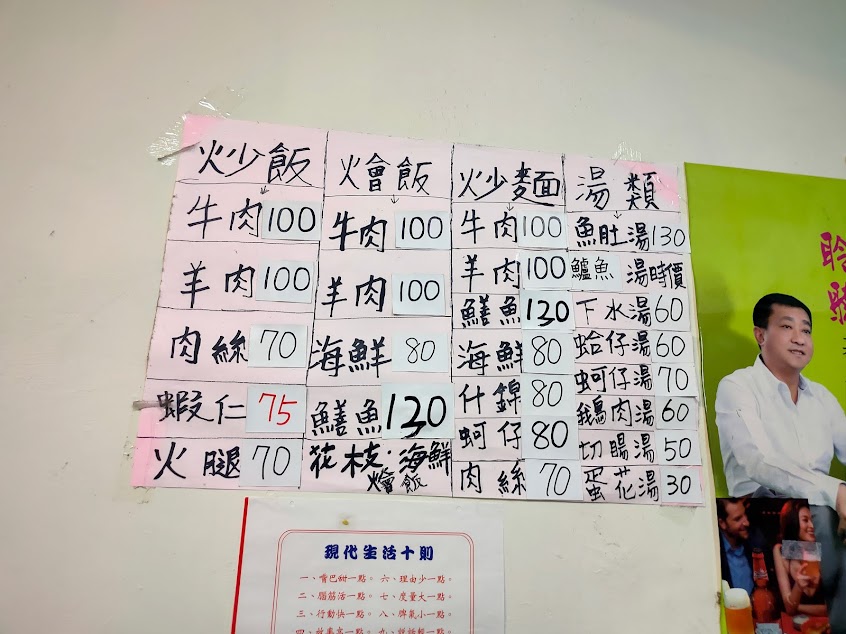 炒飯
牛肉100
羊肉100
肉絲70
蝦仁75
火腿70
燴飯
牛肉100
羊肉100
海鮮80
鱔魚130
花枝.海鮮
燴飯
炒麵
牛肉100
羊肉100
鱔魚130
海鮮80
什錦80
蚵仔80
肉絲70
湯類
魚肚湯130
鱸魚湯時價
下水湯60
蛤仔湯60
蚵仔湯70
鵝肉湯60
切腸湯50
蛋花湯30
現代生活十則
一、嘴巴甜一點。 六、理由少一點。
二、腦筋活一點。 七、度量大一點。
三、行動快一點。 八、脾氣小一點。